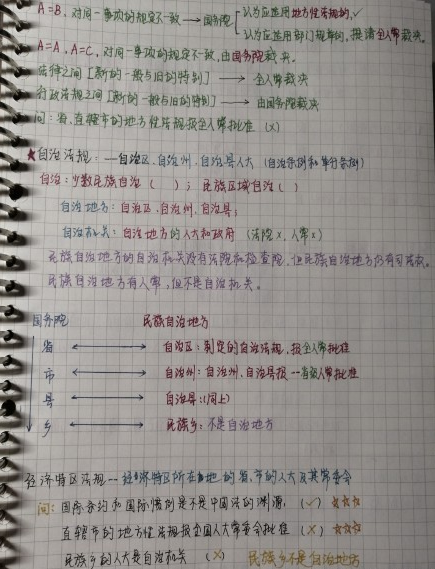 A=B，对同一事项的规定不一致 → 国务院 认为应适用地方性法规的，✓
认为应适用部门规章的，提请全人常裁决。
A=A，A=C，对同一事项的规定不一致，由国务院裁决。
法律之间［新的一般与旧的特别］ → 全人常裁决
行政法规之间［新的一般与旧的特别］ → 由国务院裁决
问：省、直辖市的地方性法规报全人常批准（X）
★自治法规：一自治区、自治州、自治县人大（自治条例和单行条例）
自治：少数民族自治（ ）；民族区域自治（ ）
自治地方：自治区、自治州、自治县；
自治机关：自治地方的人大和政府（法院X、人常X）
民族自治地方的自治机关没有法院和检查院，但民族自治地方仍有司法权。
民族自治地方有人常，但不是自治机关。
国务院 民族自治地方
省 ←→ 自治区：制定的自治法规，报全人常批准
市 ←→ 自治州：自治州、自治县报一省级人常批准
县 ←→ 自治县：（同上）
乡 ←→ 民族乡：不是自治地方
经济特区法规--经济特区所在地的省、市的人大及其常委会
问：国际条约和国际惯例是不是中国法的渊源，（✓）☆☆☆
直辖市的地方性法规报全国人大常委会批准（X）☆☆☆
民族乡的人大是自治机关（X） 民族乡不是自治地方